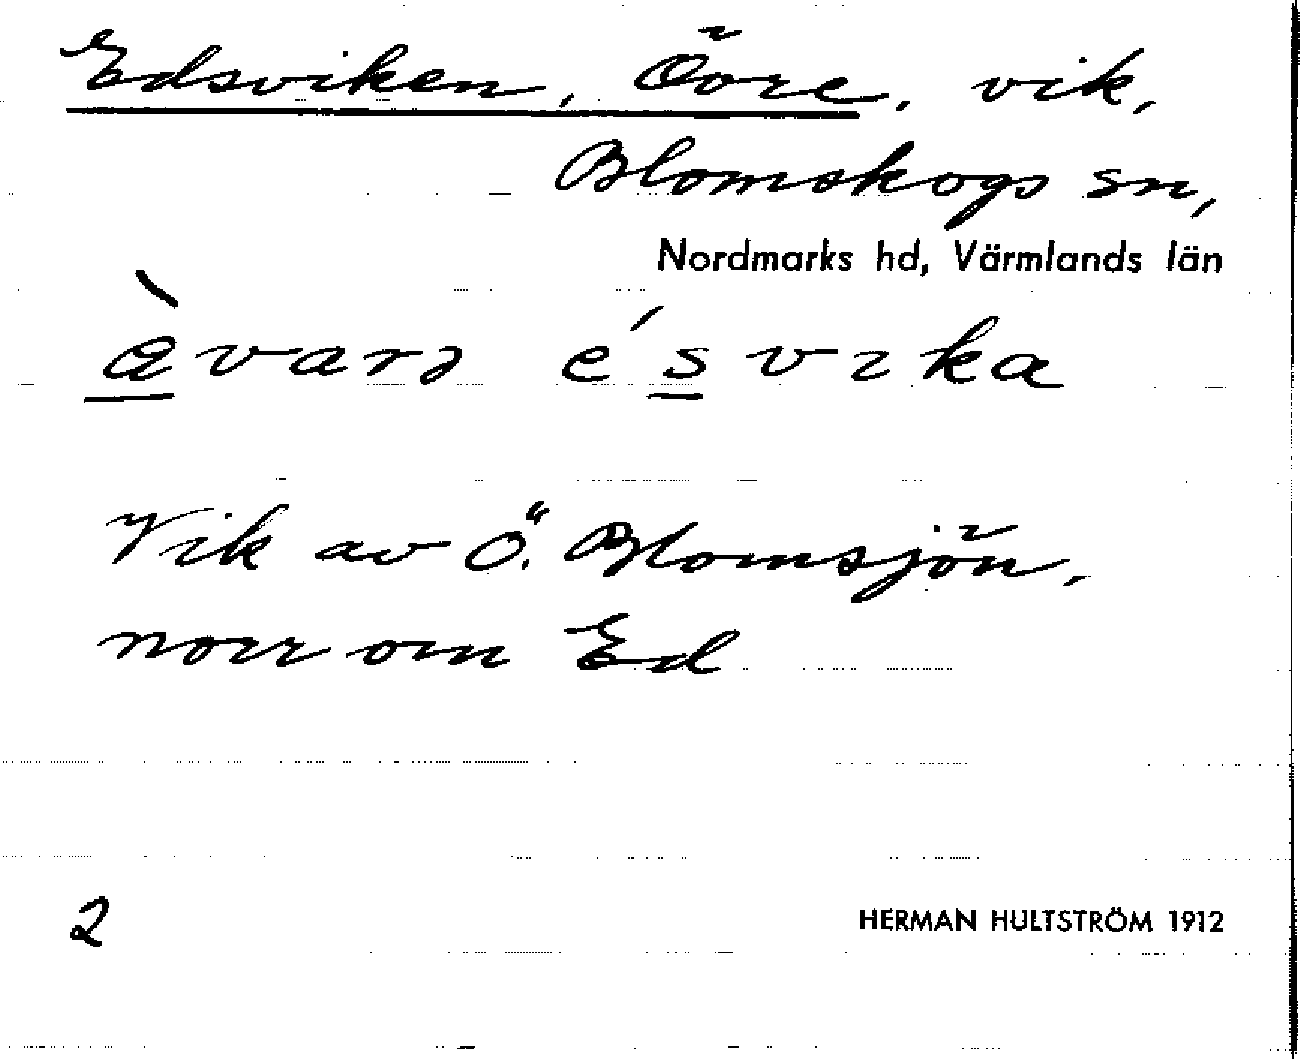 Edsviken, Övre, vik,
Blomskogs sn,
Nordmarks hd, Värmlands län
àvarə ésvıka
Vik av Ö. Blomsjön,
norr om Ed
2
HERMAN HULTSTRÖM 1912